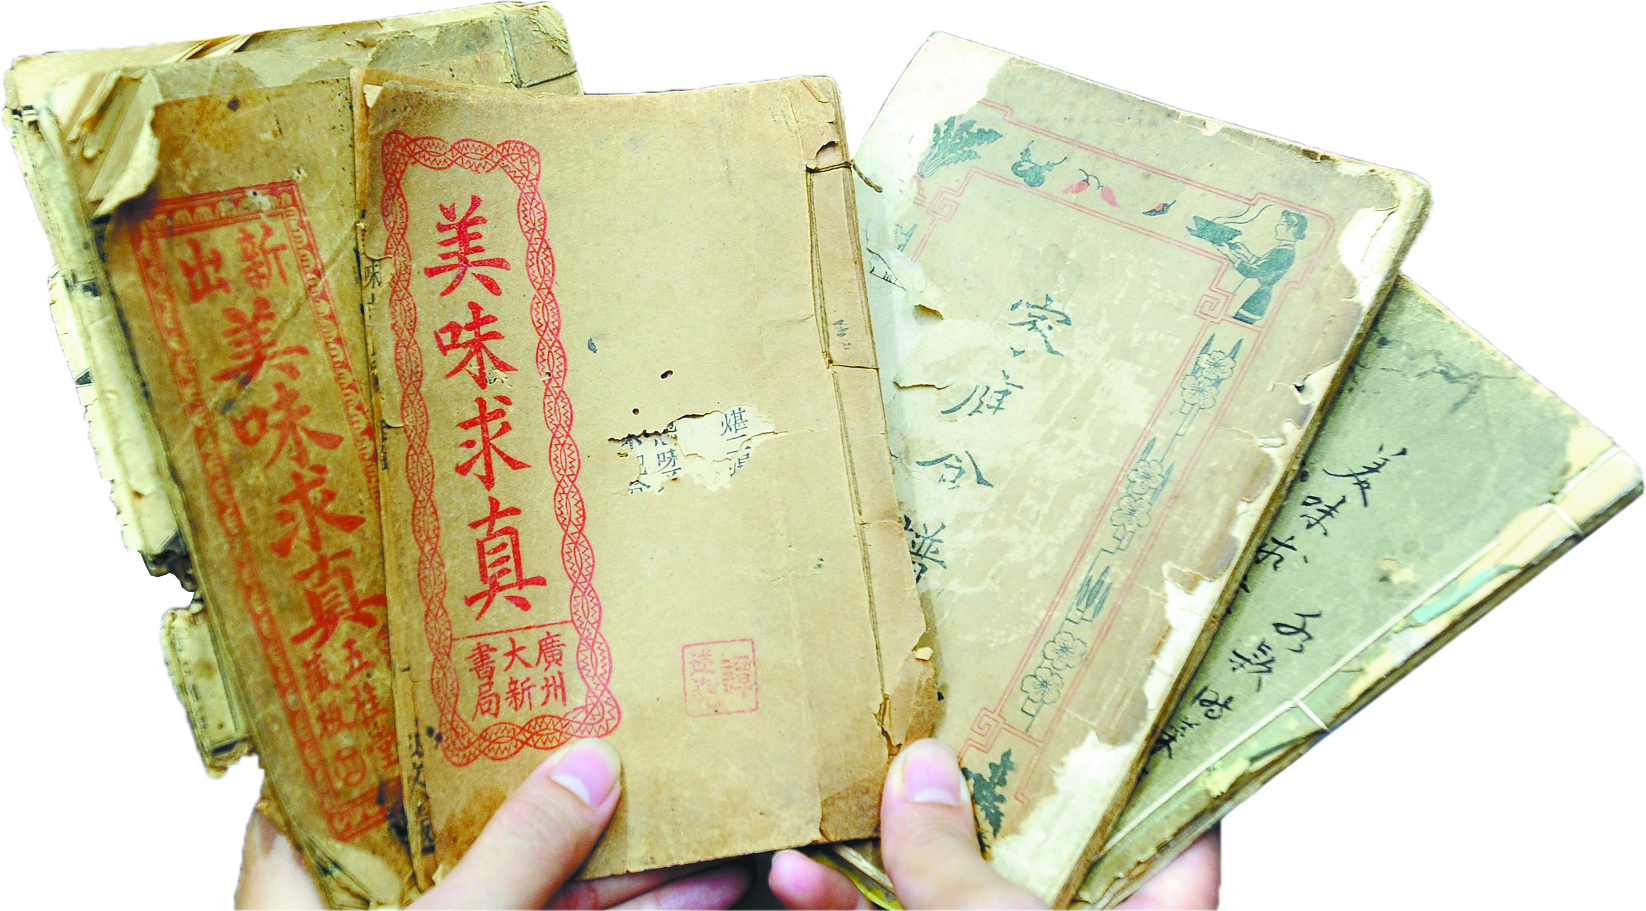 新出
美味求真
五桂堂
藏板
美味求真
廣州
大新
書局
譚
煁
味
家庭食譜
美味求